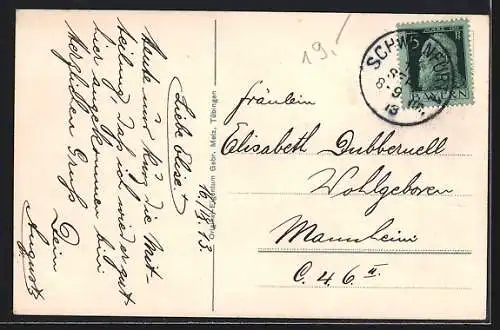 19.-
Liebe Elise!
16/IX 13
Heute nur kurz die Mit-
teilung, dass ich wieder gut
hier angekommen bin
Herzlichen Gruß
Dein
August
Original-Eigentum Gebr. Metz, Tübingen
SCHWEINFURT
8-9
13
BAYERN
Fräulein
Elisabeth Dubbernell
Wohlgeboren
Mannheim
C. 4 6 II.